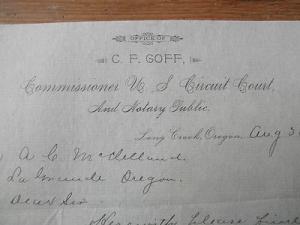 OFFICE OF
C. F. GOFF,
Commissioner U S Circuit Court,
And Notary Public.
Long Creek, Oregon, Aug 3
A C McClelland.
La Grande Oregon.
Dear Sir
Herewith please find